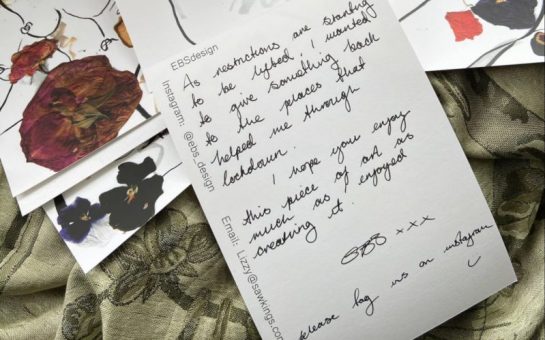 EBSdesign
Instagram: @ebs_design
Email: Lizzy@sawkings.com
As restrictions are starting
to be lifted, I wanted
to give something back
to the places that
helped me through
lockdown.
I hope you enjoy
this piece of art as
much as I enjoyed
creating it!
EBS xxx
please tag us on instagram